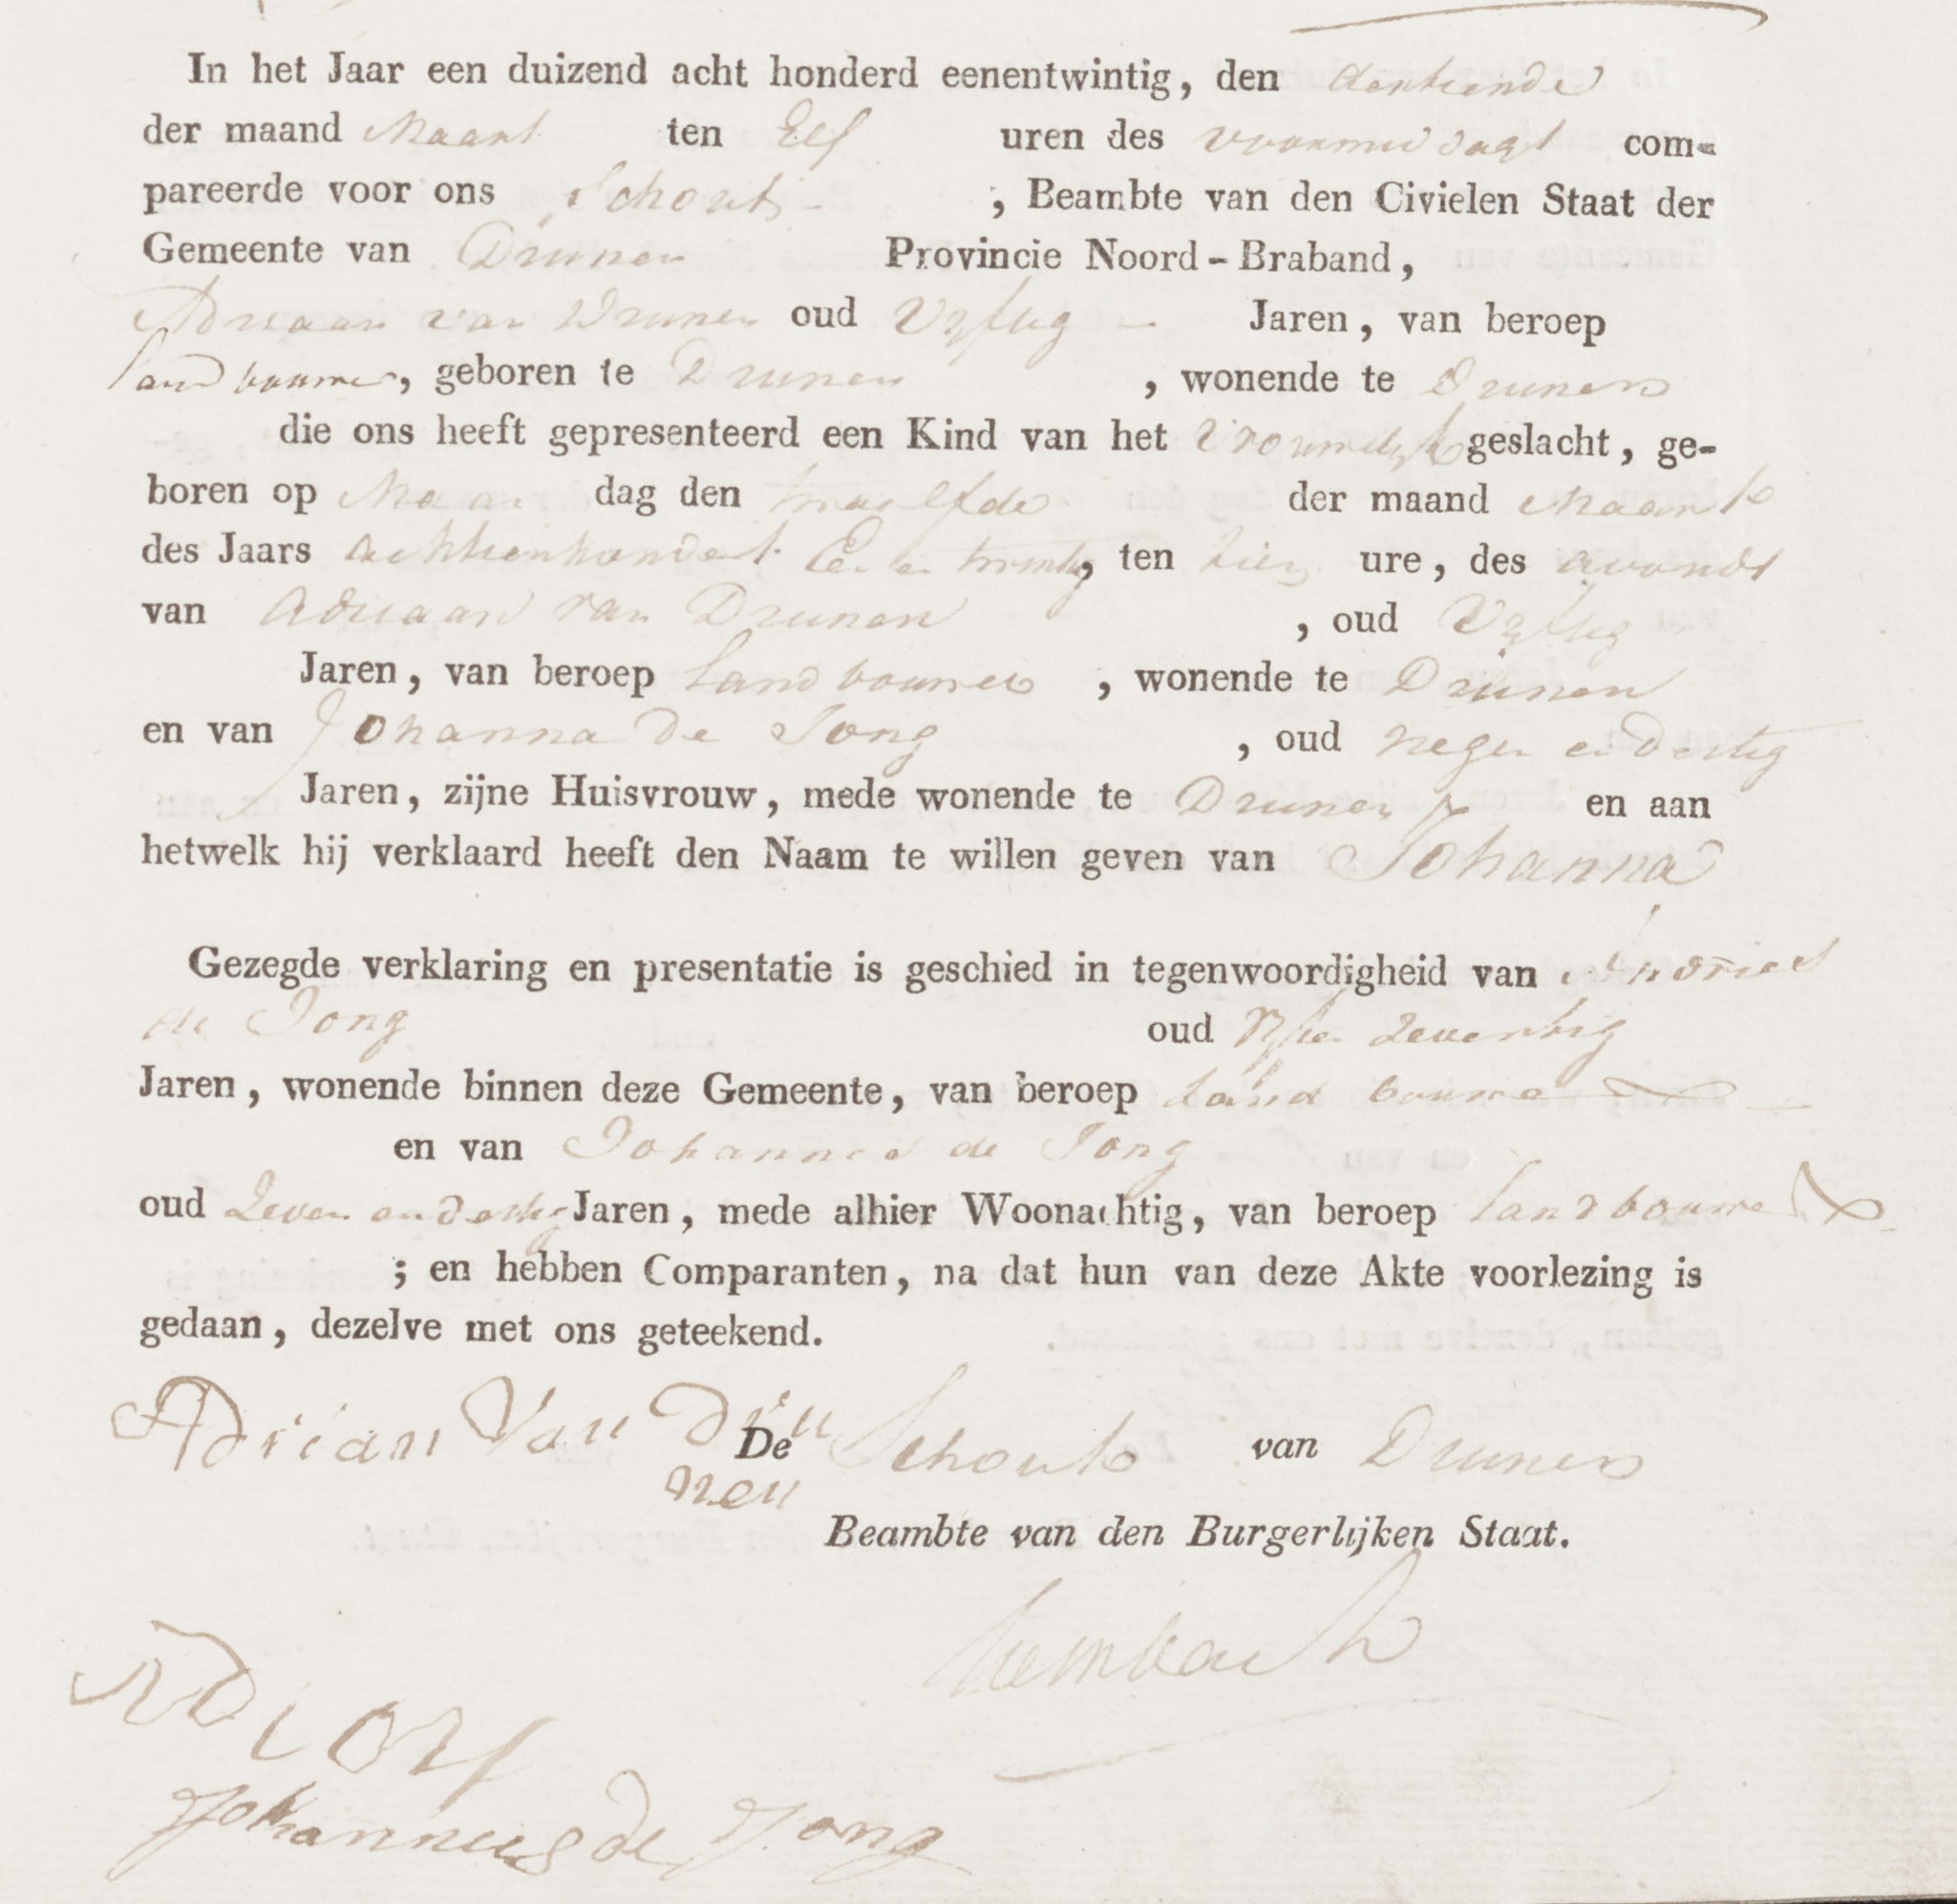 In het Jaar een duizend acht honderd eenentwintig, den
der maand Maart ten Elf uren des voormiddags com-
pareerde voor ons Schout, Beambte van den Civielen Staat der
Gemeente van Drunen Provincie Noord-Braband,
Adriaan van Drunen oud Vyftig Jaren, van beroep
landbouwer, geboren te Drunen, wonende te Drunen
die ons heeft gepresenteerd een Kind van het Vrouwelyk geslacht, ge-
boren op Maan dag den twaelfde der maand Maart
des Jaars achttienhondert Een en twintig, ten tien ure, des avonds
van Adriaan van Drunen, oud Vyftig
Jaren, van beroep Landbouwer, wonende te Drunen
en van Johanna de Jong, oud negen en dertig
Jaren, zijne Huisvrouw, mede wonende te Drunen en aan
hetwelk hij verklaard heeft den Naam te willen geven van Johanna
Gezegde verklaring en presentatie is geschied in tegenwoordigheid van Andries
de Jong oud zeventig
Jaren, wonende binnen deze Gemeente, van beroep Land bouwer
en van Johannes de Jong
oud Zeven en dertig Jaren, mede alhier Woonachtig, van beroep landbouwer
; en hebben Comparanten, na dat hun van deze Akte voorlezing is
gedaan, dezelve met ons geteekend.
Adrian Van Dru
nen
De Schout van Drunen
Beambte van den Burgerlijken Staat.
Johannes de Jong